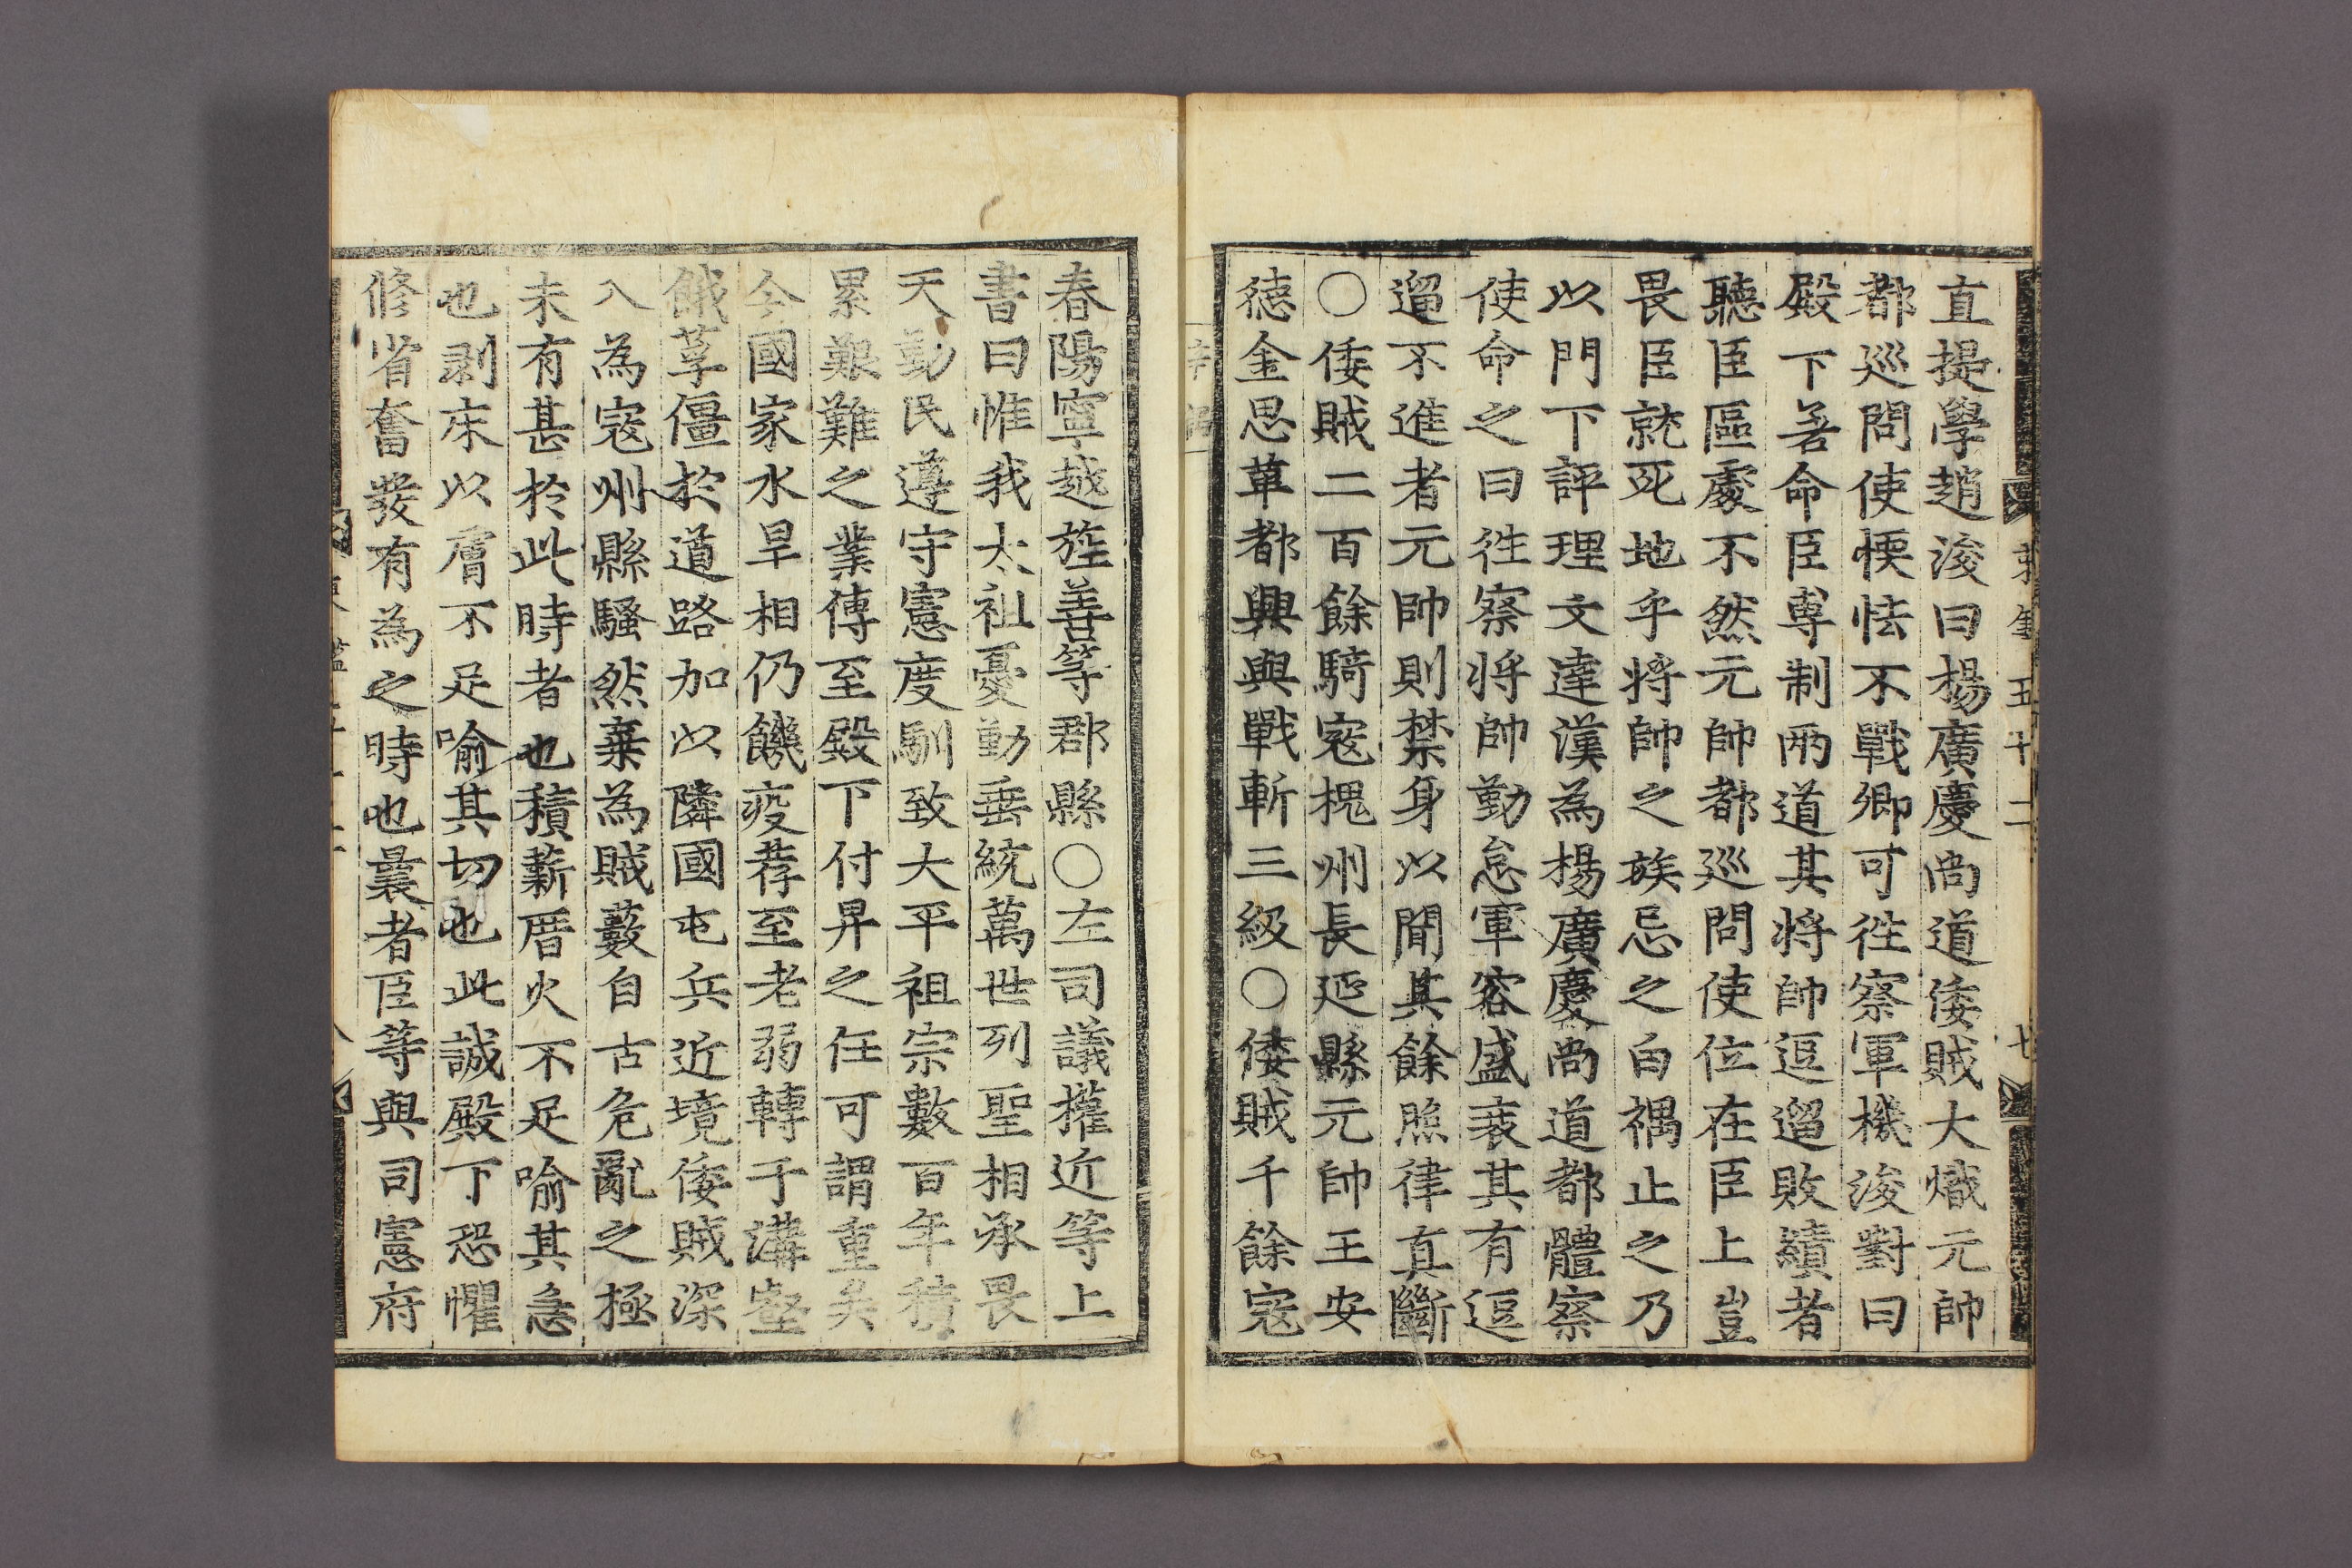 直提學趙浚曰楊廣慶尚道倭賊大熾元帥
都巡問使愞怯不戰卿可徃察軍機浚對曰
殿下若命臣專制兩道其將帥逗遛敗績者
聽臣區處不然元帥都巡問使位在臣上豈
畏臣就死地乎將帥之族忌之白禑止之乃
以門下評理文達漢為楊廣慶尚道都體察
使命之曰徃察將帥勤怠軍容盛衰其有逗
遛不進者元帥則禁身以聞其餘照律直斷
○倭賊二百餘騎寇槐州長延縣元帥王安
德金思革都興與戰斬三級○倭賊千餘寇
春陽寧越旌善等郡縣○左司議權近等上
書曰惟我太祖憂勤垂統萬世列聖相承畏
天勤民遵守憲度馴致大平祖宗數百年積
累艱難之業傳至殿下付畀之任可謂重矣
今國家水旱相仍饑疫荐至老弱轉于溝壑
餓莩僵於道路加以隣國屯兵近境倭賊深
入為寇州縣騷然棄為賊藪自古危亂之極
未有甚於此時者也積薪厝火不足喻其急
也剥床以膚不足喻其切也此誠殿下恐懼
修省奮發有為之時也曩者臣等與司憲府